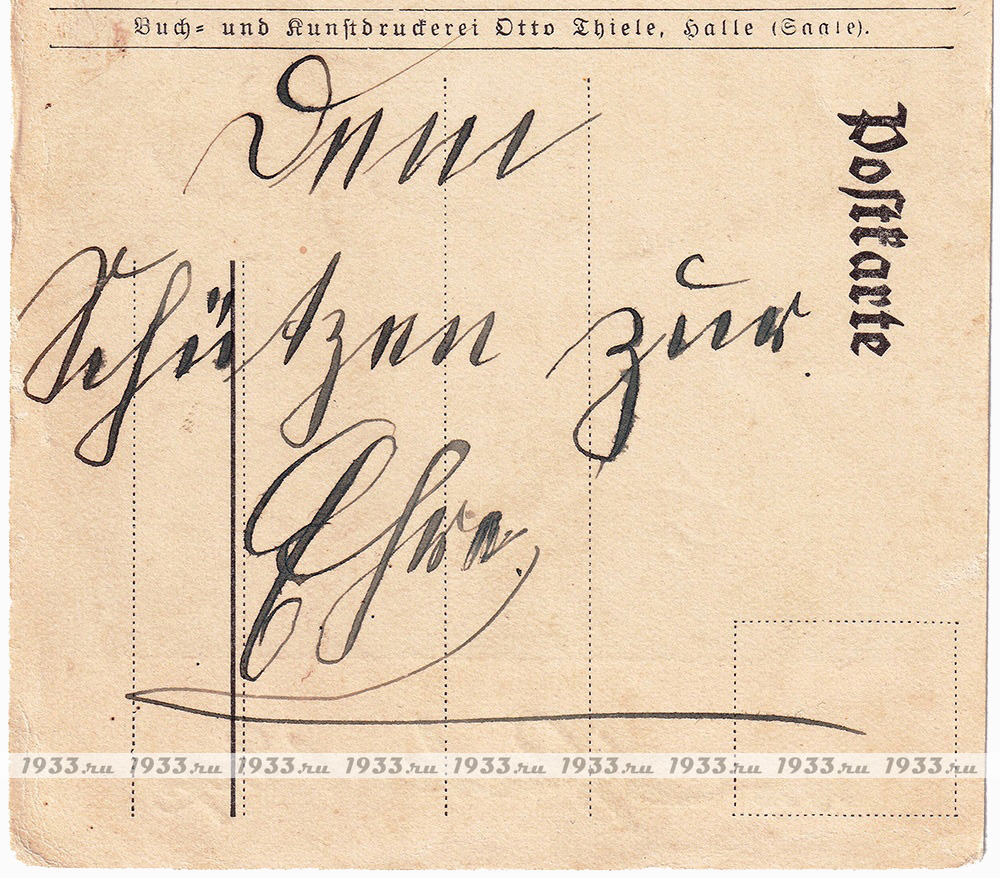 Buch- und Kunstdruckerei Otto Thiele, Halle (Saale).
Postkarte
Dem
Schützen zur
Ehre.
1933.ru 1933.ru 1933.ru 1933.ru 1933.ru 1933.ru 1933.ru 1933.ru 1933.ru